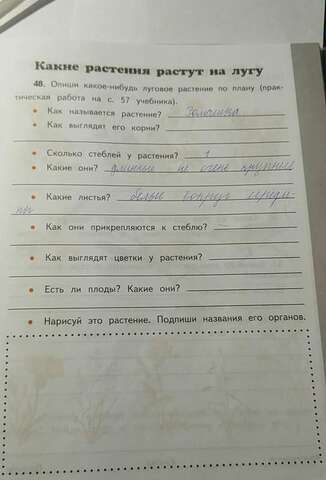 Какие растения растут на лугу
48. Опиши какое-нибудь луговое растение по плану (прак-
тическая работа на с. 57 учебника).
• Как называется растение?
• Как выглядят его корни?
• Сколько стеблей у растения? 1
• Какие они? длинные не очень крупные
• Какие листья? белые вокруг середи
ны
• Как они прикрепляются к стеблю?
• Как выглядят цветки у растения?
• Есть ли плоды? Какие они?
• Нарисуй это растение. Подпиши названия его органов.